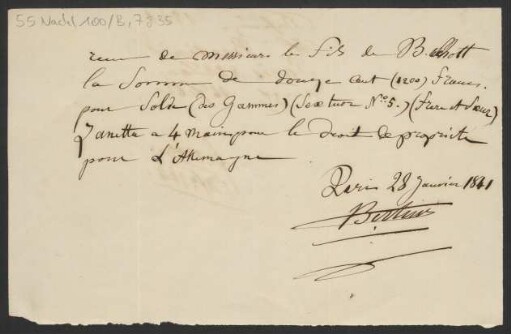 55 Nachl. 100/B, 7835
recu de messieurs les fils de B. Schott
la Somme de douze cent (1200) Francs
pour Solde (des Gammes) (Sextuor No 5.) (Frere et Sœur)
Zanetta a 4 mains pour le droit de propriete
pour L'Allemagne
Paris 28 Janvier 1841
Bertini